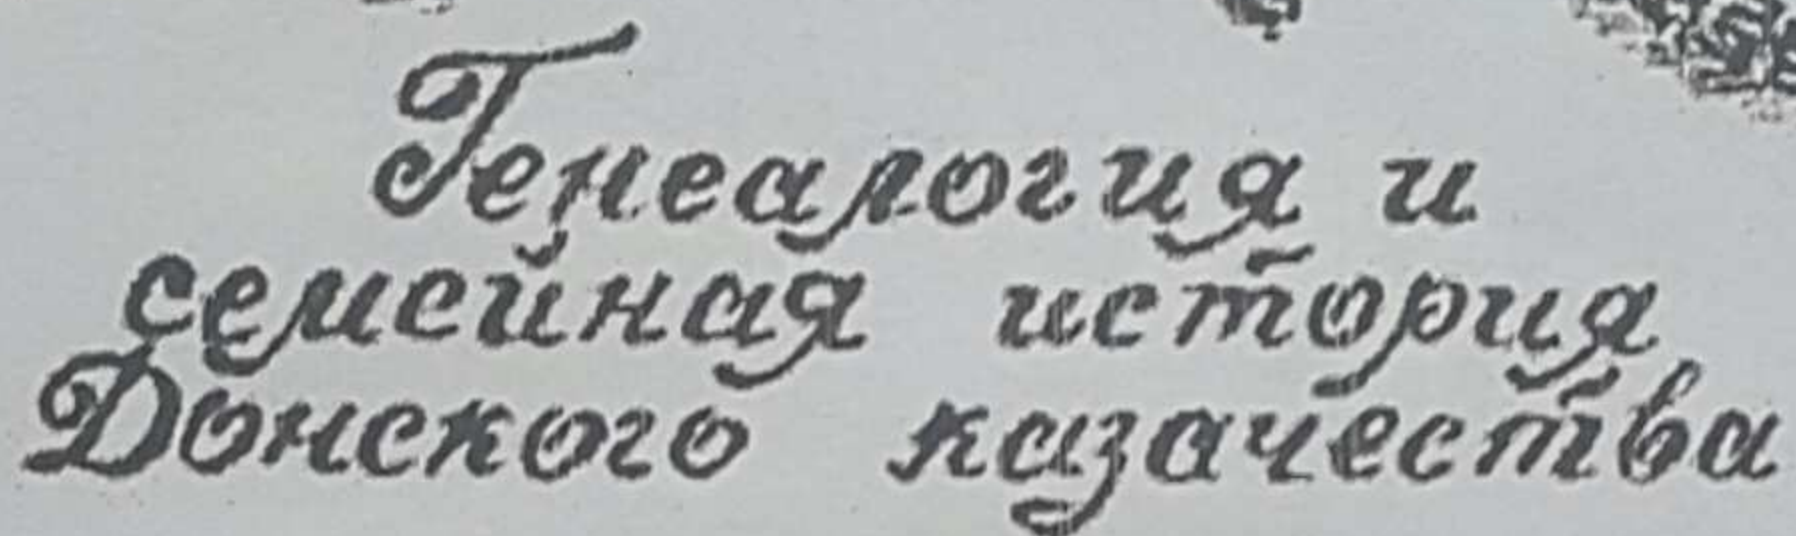 Генеалогия и
семейная история
Донского казачества